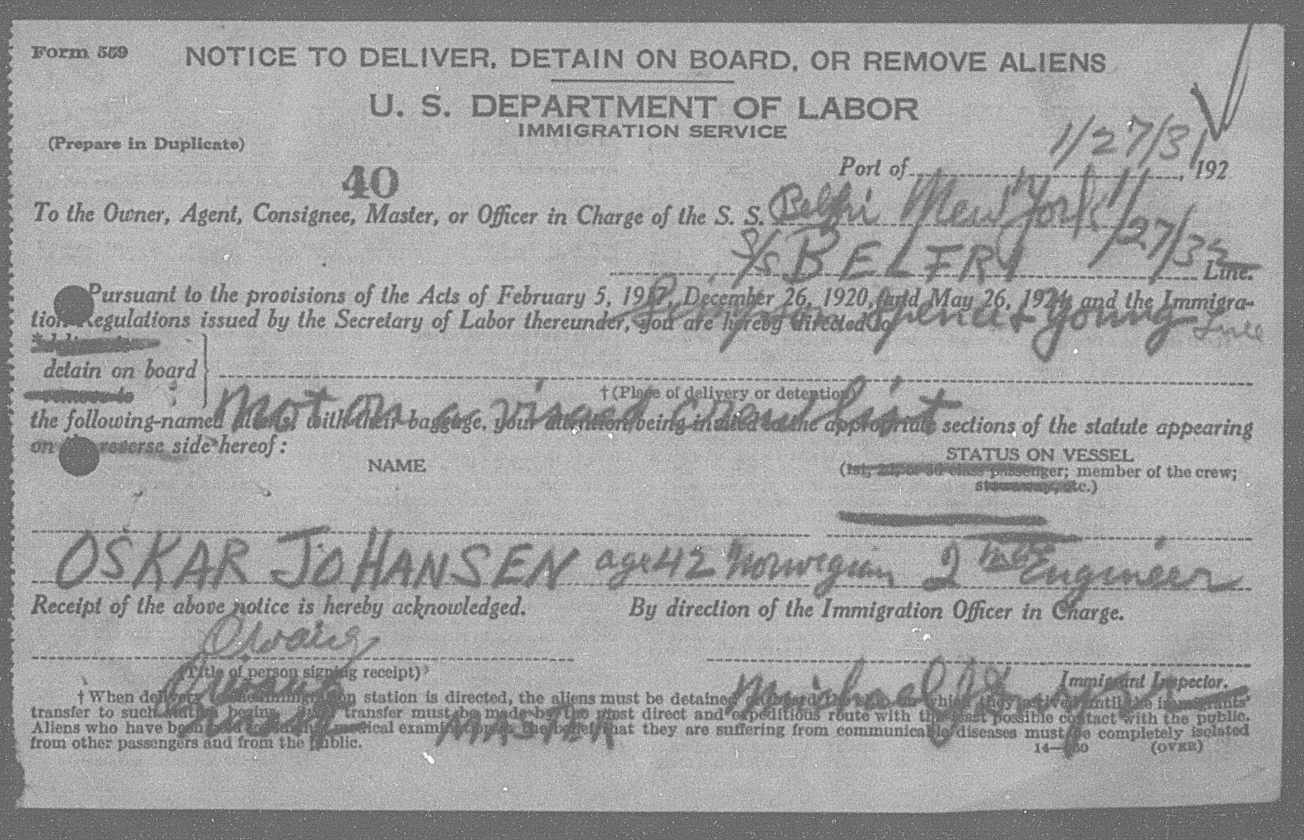 Form 559
NOTICE TO DELIVER, DETAIN ON BOARD, OR REMOVE ALIENS
U. S. DEPARTMENT OF LABOR
IMMIGRATION SERVICE
(Prepare in Duplicate)
1/27/31
Port of , 192
40
To the Owner, Agent, Consignee, Master, or Officer in Charge of the S. S. New York 1/27/32
S/S BELFRI
Line.
Pursuant to the provisions of the Acts of February 5, 1917, December 26, 1920, and May 26, 1924, and the Immigra-
tion Regulations issued by the Secretary of Labor thereunder, you are hereby directed to
Spence & Young Line
detain on board
†(Place of delivery or detention)
Not on a visaed crew list
the following-named aliens, with their baggage, your attention being invited to the appropriate sections of the statute appearing
on the reverse side hereof:
NAME
STATUS ON VESSEL
(1st, 2d, or 3d class passenger; member of the crew;
stowaway, etc.)
OSKAR JOHANSEN age 42 Norwegian 2nd Engineer
Receipt of the above notice is hereby acknowledged.
By direction of the Immigration Officer in Charge.
(Title of person signing receipt)
Immigrant Inspector.
Michael
MASTER
† When delivery at the immigration station is directed, the aliens must be detained on board until the immigrants
transfer to such station begins. transfer must be made by the most direct and expeditious route with the least possible contact with the public.
Aliens who have been medical examination in the belief that they are suffering from communicable diseases must be completely isolated
from other passengers and from the public.
(OVER)